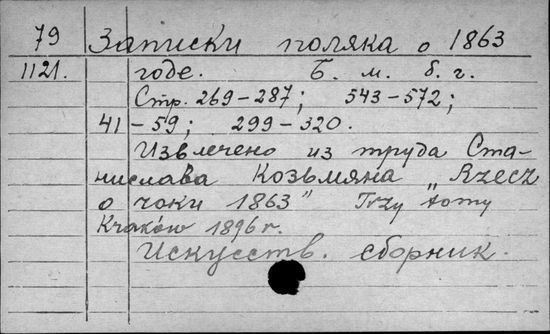 79 Записки поляка о 1863
1121. годе. Б. м. б. г.
Стр. 269-287; 543-572;
41-59; 299-320.
Извлечено из труда Ста-
нислава Козьмяна „Rzecz
o roku 1863" Trzy tomy
Kraków 1896 г.
Искусств. сборник.